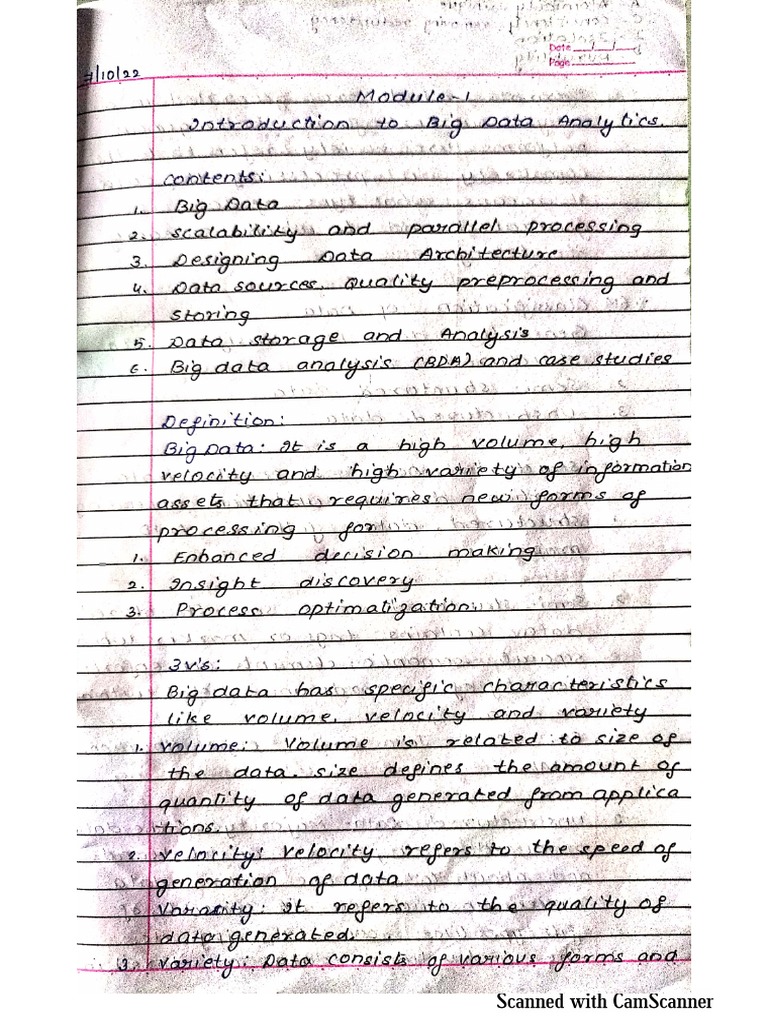 Date __/__/__
Page
7/10/22
Module-1
Introduction to Big Data Analytics.
contents:
1. Big Data
2. scalability and parallel processing
3. Designing Data Architecture
4. Data sources, Quality preprocessing and
storing
5. Data storage and Analysis
6. Big data analysis (BDA) and case studies
Definition:
Big Data: It is a high volume, high
velocity and high variety of information
assets that requires new forms of
processing for
1. Enhanced decision making
2. Insight discovery
3. Process optimalization.
3v's:
Big data has specific characteristics
like volume, velocity and variety
1. volume: Volume is related to size of
the data. size defines the amount of
quantity of data generated from applica
tions.
2. velocity: velocity refers to the speed of
generation of data
Varasity: It refers to the quality of
data generated.
3. variety: Data consists of various forms and
Scanned with CamScanner